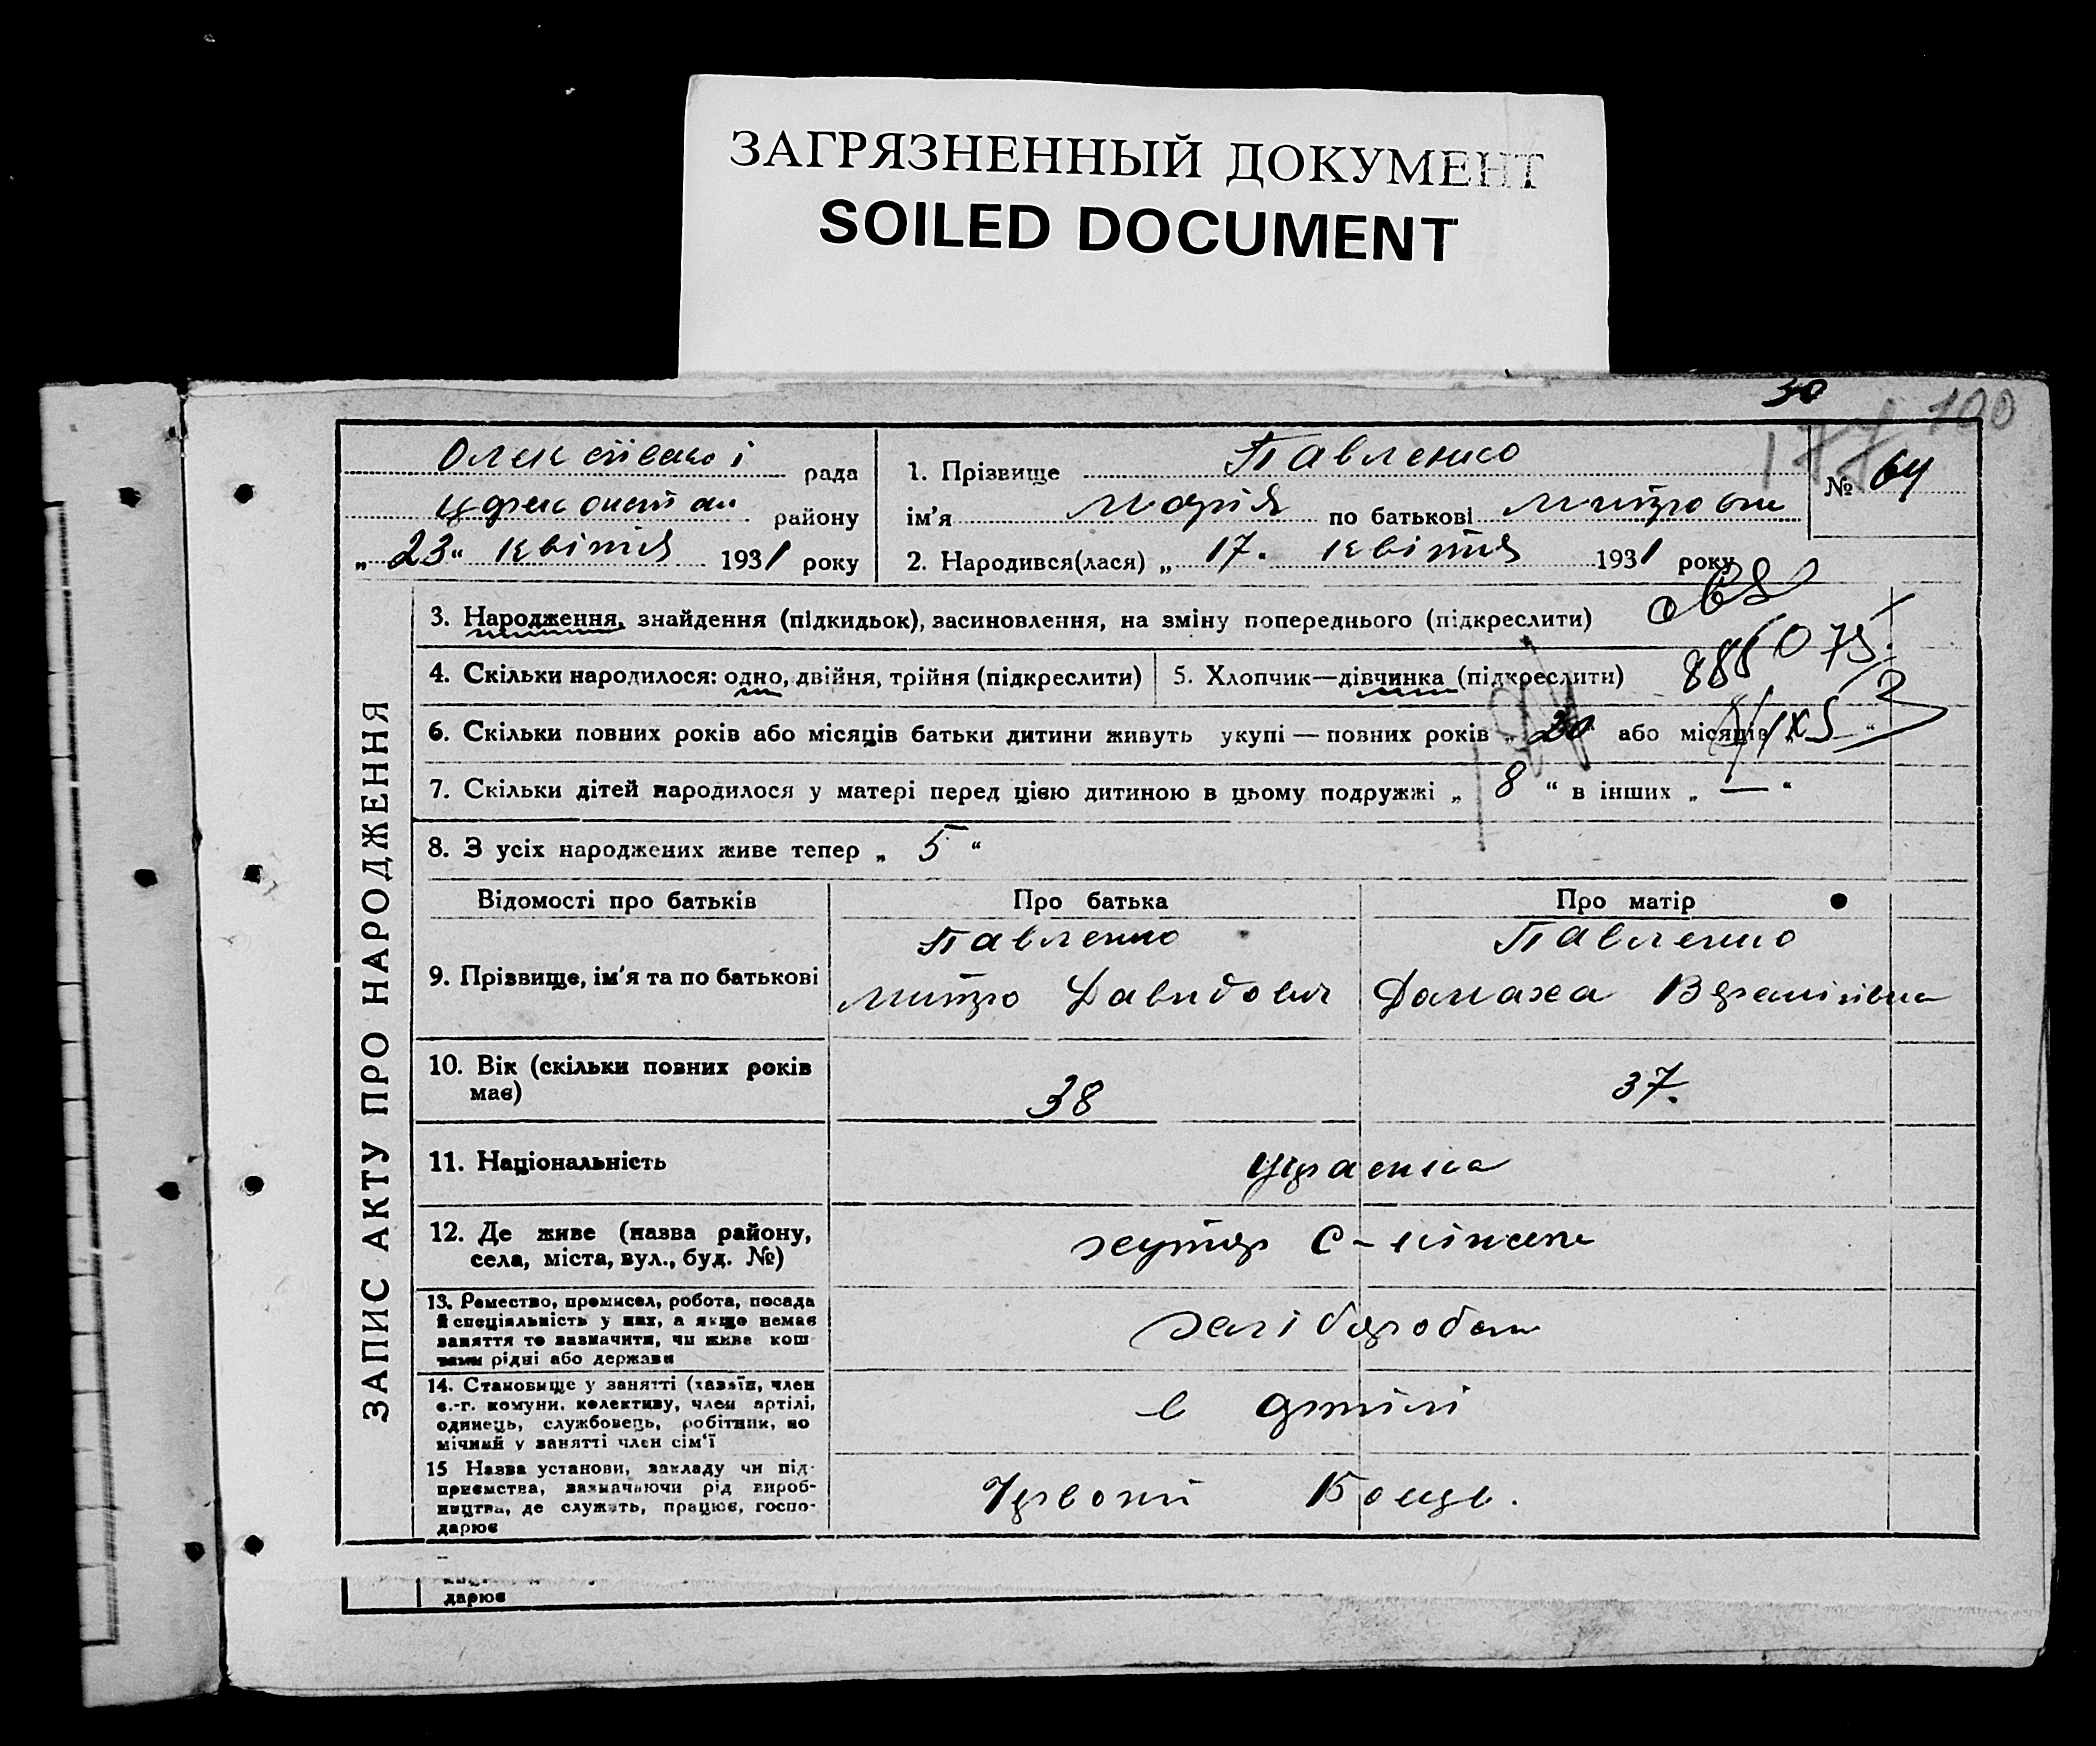 ЗАГРЯЗНЕННЫЙ ДОКУМЕНТ
SOILED DOCUMENT
30
177 100
рада
району
„23“ квітня 1931 року
1. Прізвище Павленко
ім'я Марія по батькові
2. Народився(лася) „17. квітня 1931 року
№ 64
ЗАПИС АКТУ ПРО НАРОДЖЕННЯ
3. Народження, знайдення (підкидьок), засиновлення, на зміну попереднього (підкреслити)
4. Скільки народилося: одно, двійня, трійня (підкреслити)
5. Хлопчик—дівчинка (підкреслити)
6. Скільки повних років або місяців батьки дитини живуть укупі — повних років „20 або місяців „ “
7. Скільки дітей народилося у матері перед цією дитиною в цьому подружжі „ 8 “ в інших „ — “
8. З усіх народжених живе тепер „ 5 “
Відомості про батьків
Про батька
Про матір
9. Прізвище, ім'я та по батькові
Павленко
Митро Давидович
Павленко
Домаха
10. Вік (скільки повних років має)
38
37.
11. Національність
12. Де живе (назва району,
села, міста, вул., буд. №)
хутір
13. Ремество, промисел, робота, посада
й спеціяльність у них, а якщо немає
заняття то зазначити, чи живе кош-
тами рідні або держави
хліборобство
14. Становище у занятті (хазяїн, член
с.-г. комуни, колективу, член артілі,
одинець, службовець, робітник, по
мічний у занятті член сім'ї
в артілі
15 Назва установи, закладу чи під-
приємства, зазначаючи рід вироб-
ництва, де служить, працює, госпо-
дарює
Червоний
дарює